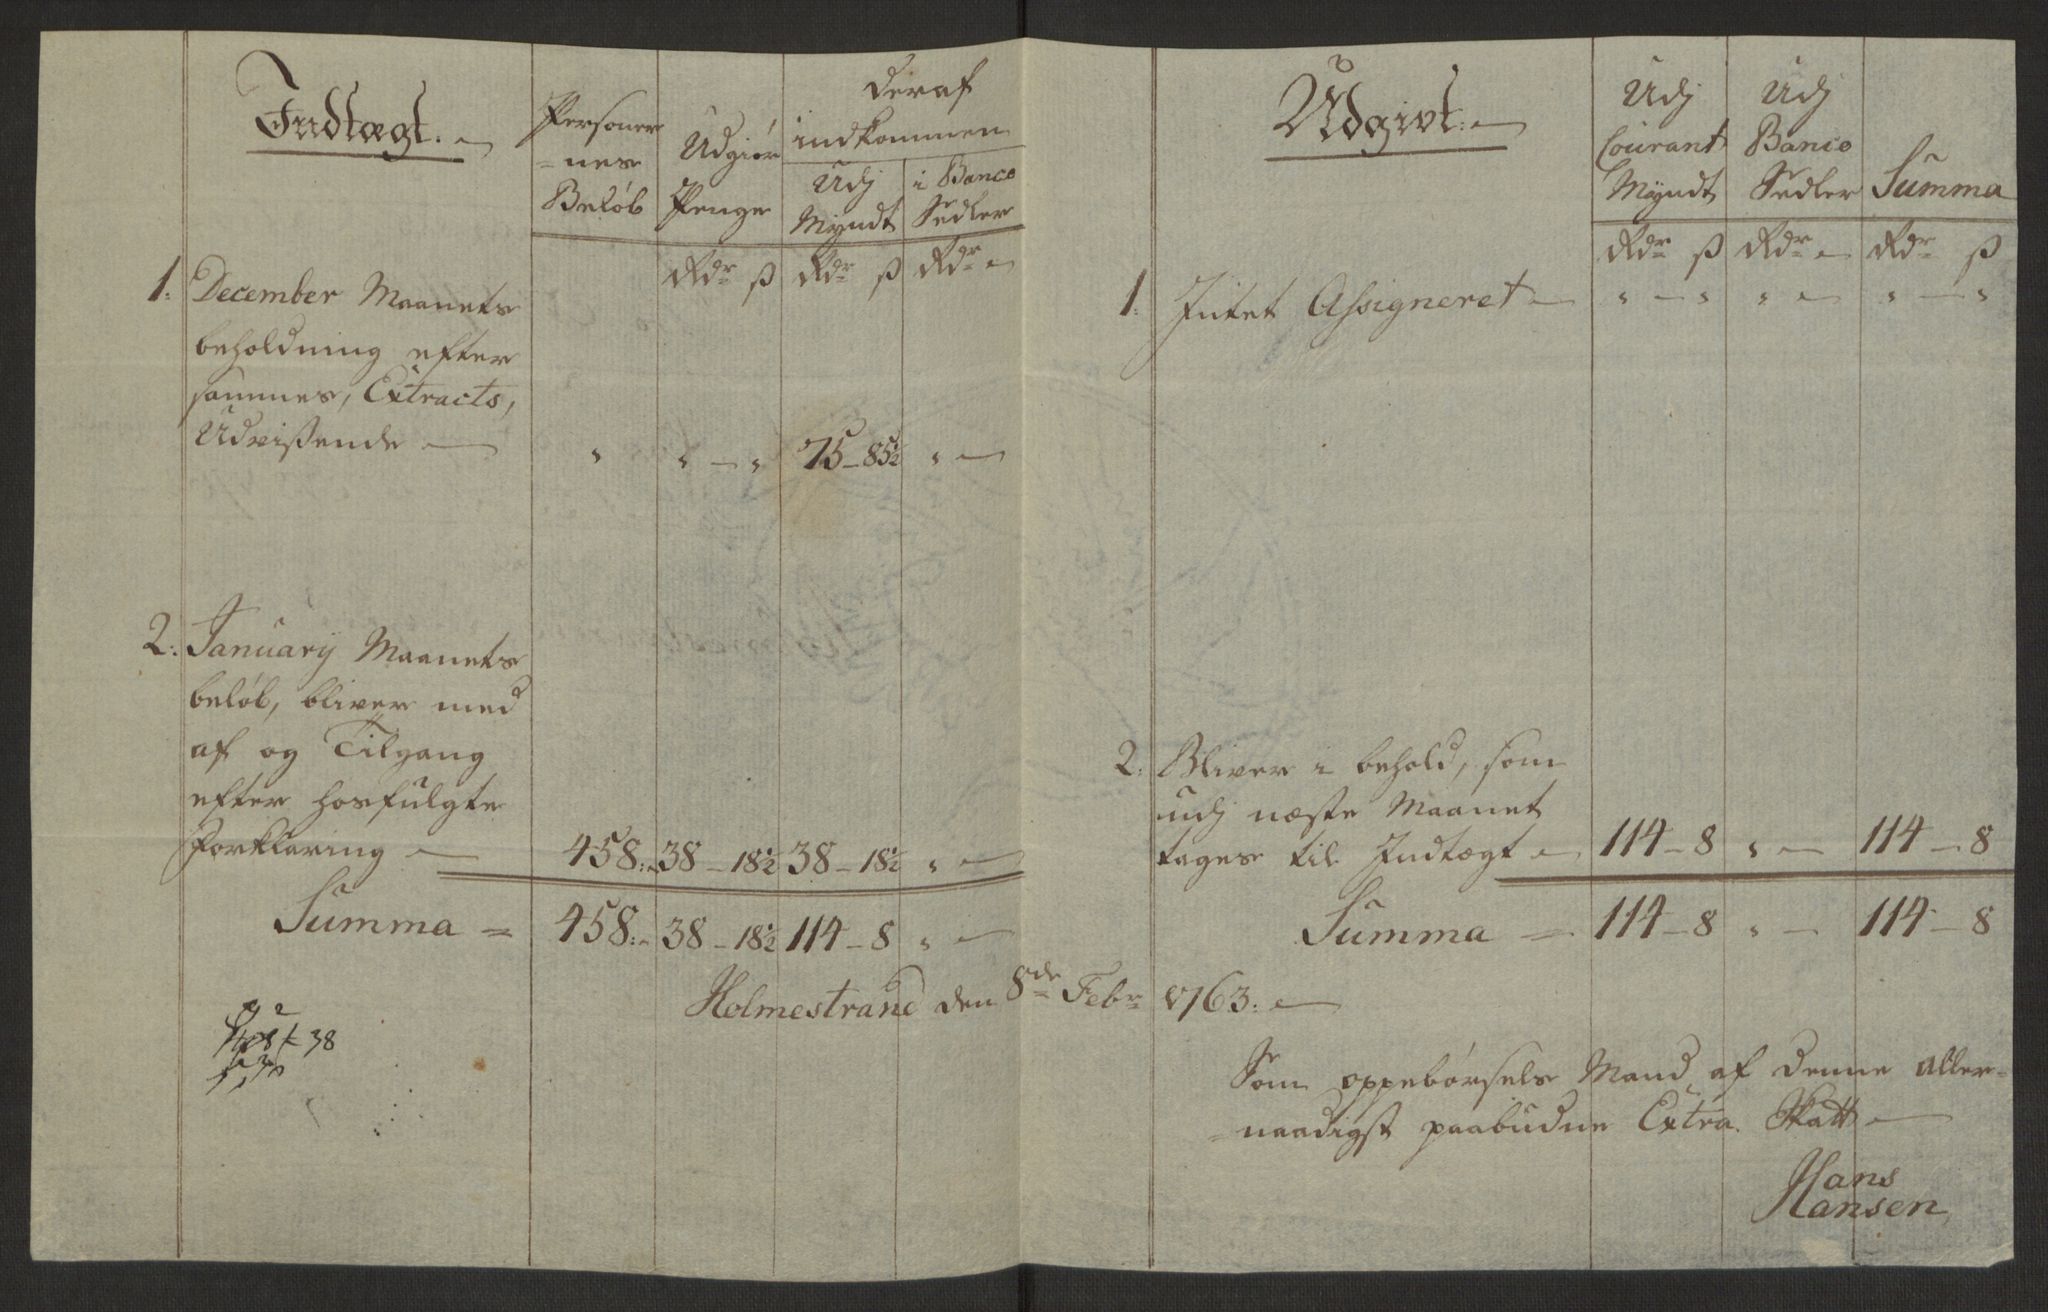 Indtægt.
Personer
=nes
Beløb
Udgiør
Penge
Deraf
indkommen
Udj
Myndt
i Banco
Sedler
Rdr ß Rdr ß Rdr
1. December Maanets
beholdning efter
sammes, Extracts,
Udvißende — " " — " 75 – 85½ " —
2. January Maanets
beløb, bliver med
af og Tilgang
efter hosfulgte
Forklaring — 458:- 38 – 18½ 38 – 18½ " —
Summa = 458:- 38 – 18½ 114 – 8 " —
38
Udgivt:
Udj
Courant
Myndt
Udj
Banco
Sedler
Summa
Rdr ß Rdr Rdr ß
1. Intet Assigneret — " – " " — " – "
2. Bliver i behold, som
udj næste Maanet
tages til Indtægt — 114 – 8 " — 114 – 8
Summa = 114 – 8 " — 114 – 8
Holmestrand den 8de Febr 1763.
Som oppebørsels Mand af denne aller=
=naadigst paabudne Extra Skatt
Hans
Hansen